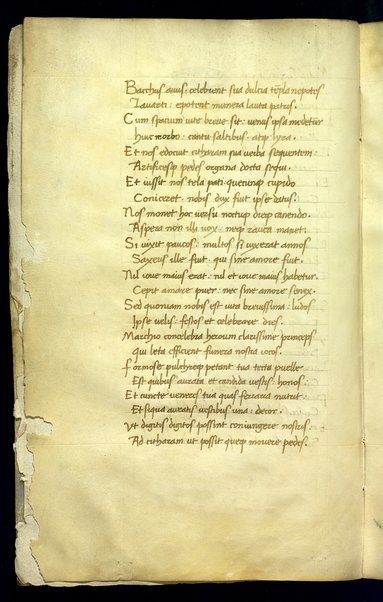 Bacchus auus: celebrent sua dulcia tẽpla nepotes
Lauarti: epotent munera lauta patris.
Cum spacium uite breue sit: uenus ipsa medetur
huic morbo: cantu saltibus: atq; lyra.
Et nos edocuit citharam sua uerba sequentem:
Artificesq; pedes organa docta sequi.
Et iussit nos tela pati quecunq; cupido
Coniceret: nobis dux fuit ipse datus.
Nos monet hoc uersu noctuq; dieq; canendo.
Aspera non illi uox: neq; rauca manet.
Si uixit paucos: multos si uixerat annos
Saxeus ille fuit: qui sine amore fuit.
Nil ioue maius erat: nil et ioue maius habetur.
Cepit amare puer: nec sine amore senex.
Sed quoniam nobis est uita breuissima: ludos
Ipse uelis: festos et celebrare dies.
Marchio concelebra heroum clarissime princeps
qui leta efficient funera nostra iocos.
Formose pulchreq; petant tua tecta puelle
Est quibus aurata et candida uestis honos:
Et cuncte ueneres tua quas ferraria nutrit
Et siqua auratis uestibus una: decor.
Vt digitis digitos possint coniungere nostris:
Ad citharam ut possit queq; mouere pedes.